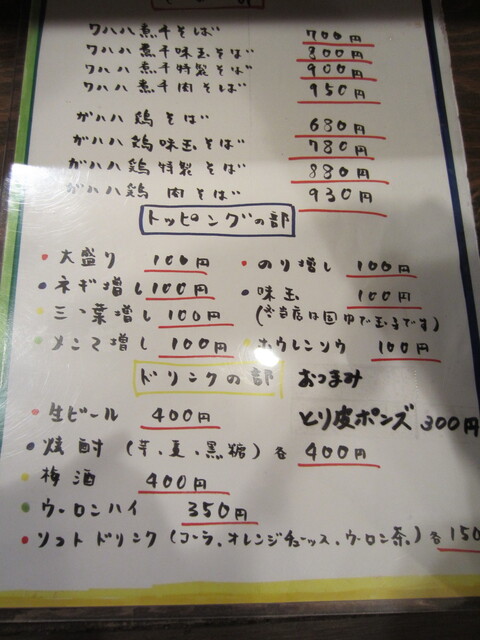 ワハハ煮干そば 700円
ワハハ煮干味玉そば 800円
ワハハ煮干特製そば 900円
ワハハ煮干肉そば 950円
ガハハ鶏そば 680円
ガハハ鶏味玉そば 780円
ガハハ鶏特製そば 880円
ガハハ鶏肉そば 930円
トッピングの部
大盛り 100円 のり増し 100円
ネギ増し 100円 味玉 100円
三ツ葉増し 100円 (当店は固ゆで玉子です)
メンマ増し 100円 ホウレンソウ 100円
ドリンクの部 おつまみ
生ビール 400円 とり皮ポンズ 300円
焼酎 (芋、麦、黒糖) 各 400円
梅酒 400円
ウーロンハイ 350円
ソフトドリンク (コーラ、オレンジジュース、ウーロン茶) 各 150